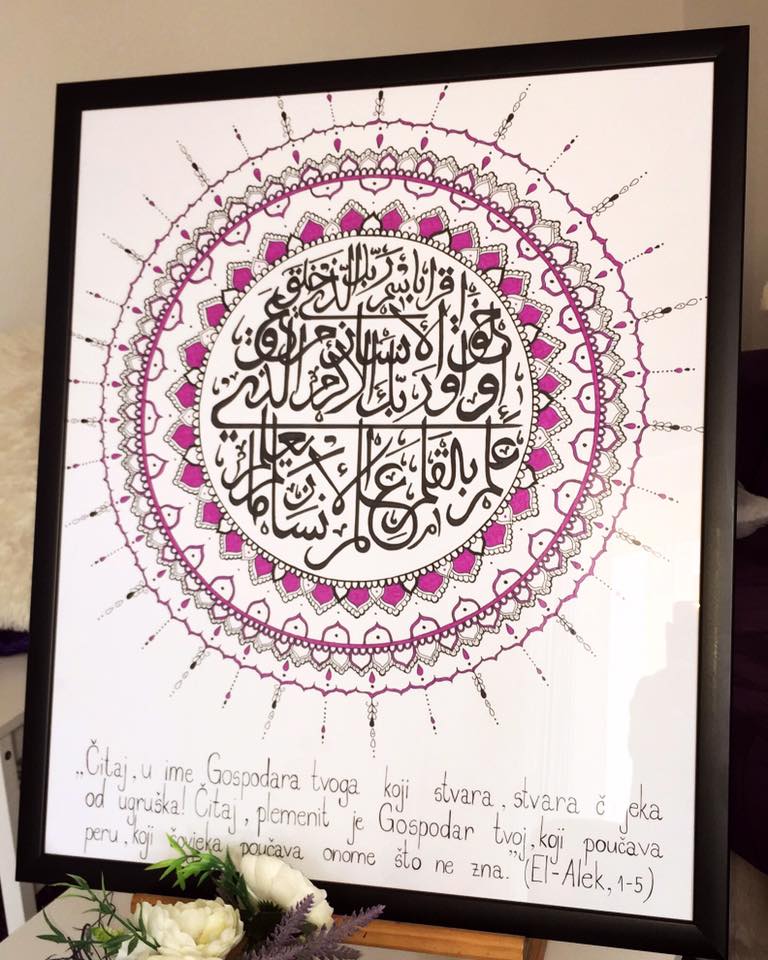 اقرأ باسم ربك الذي خلق
خلق الإنسان من علق
اقرأ وربك الأكرم الذي
علم بالقلم علم الإنسان ما لم يعلم
„Čitaj, u ime Gospodara tvoga koji stvara, stvara č jeka
od ugruška! Čitaj, plemenit je Gospodar tvoj, koji poučava
peru, koji čovjeka poučava onome što ne zna.” (El-Alek, 1-5)